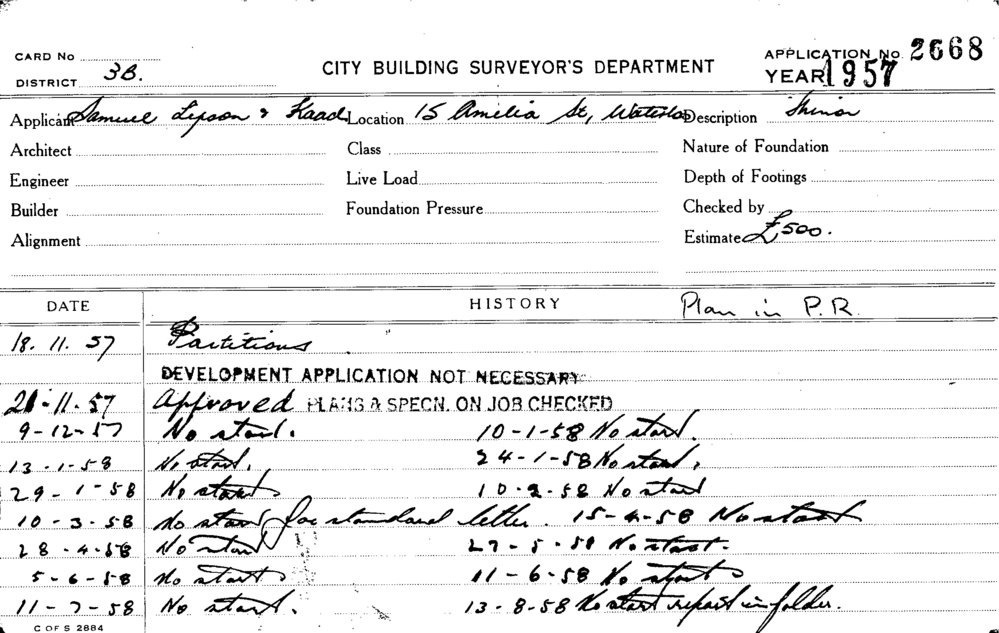 CARD No
DISTRICT 3B.
CITY BUILDING SURVEYOR'S DEPARTMENT
APPLICATION No. 2668
YEAR 1957
Applicant Samuel Lipson & Kaad Location 15 Amelia St, Waterloo Description Minor
Architect Class Nature of Foundation
Engineer Live Load Depth of Footings
Builder Foundation Pressure Checked by
Alignment Estimate £500.
DATE HISTORY Plan in P.R.
18. 11. 57 Partitions
DEVELOPMENT APPLICATION NOT NECESSARY
21-11-57 Approved PLANS & SPECN. ON JOB CHECKED
9-12-57 No start. 10-1-58 No start.
13-1-58 No start. 24-1-58 No start.
29-1-58 No start 10-2-58 No start
10-3-58 No start for standard letter. 15-4-58 No start
28-4-58 No start 27-5-58 No start.
5-6-58 No start 11-6-58 No start
11-7-58 No start. 13-8-58 No start report in folder.
C OF S 2884